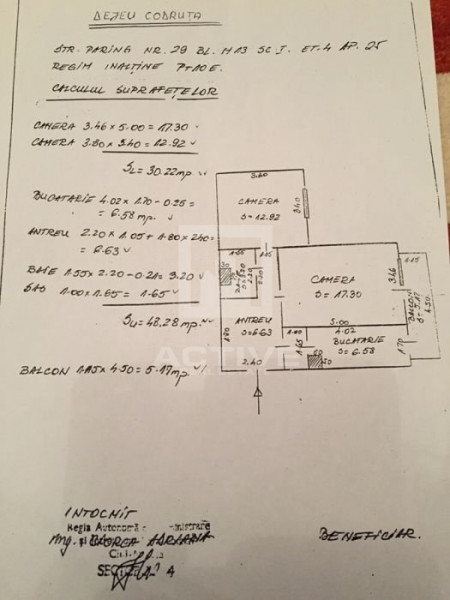 DEZEU CODRUTA
STR. PARING NR. 29 BL. M13 SC I. ET. 4 AP. 25
REGIM INALTINE P+10E.
CALCULUL SUPRAFEȚELOR
CAMERA 3.46 x 5.00 = 17.30
CAMERA 3.80 x 3.40 = 12.92
SL = 30.22 mp.
BUCATARIE 4.02 x 1.70 - 0.25 =
= 6.58 mp.
ANTREU 2.20 x 1.05 + 1.80 x 2.40 =
= 6.63
BAIE 1.55 x 2.20 - 0.21 = 3.20
1.00 x 1.65 = 1.65
SU = 48.28 mp.
BALCON 1.15 x 4.50 = 5.17 mp.
3.80
CAMERA
S = 12.92
3.40
CAMERA
S = 17.30
3.46
1.15
BALCON
S = 5.17
4.50
5.00
4.02
ANTREU
S = 6.63
1.80
1.65
BUCATARIE
S = 6.58
1.70
2.40
ACTIVE
INTOCMIT
Regia Autonomă
ing.
SECȚIA 4
BENEFICIAR.